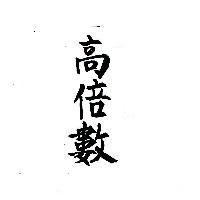 高倍數